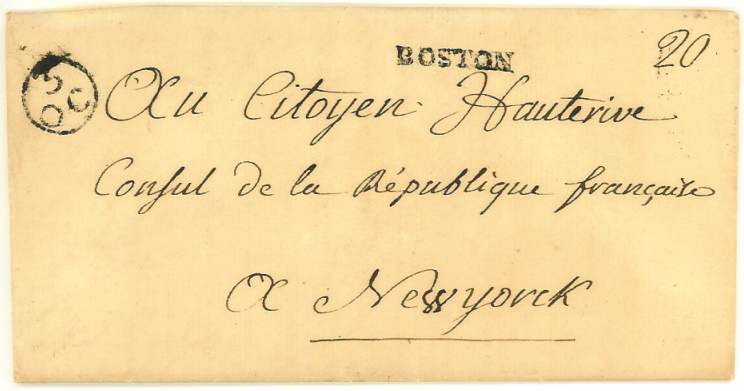 BOSTON
20
5
OC
Au Citoyen Hauterive
Consul de la République française
A Newyorck